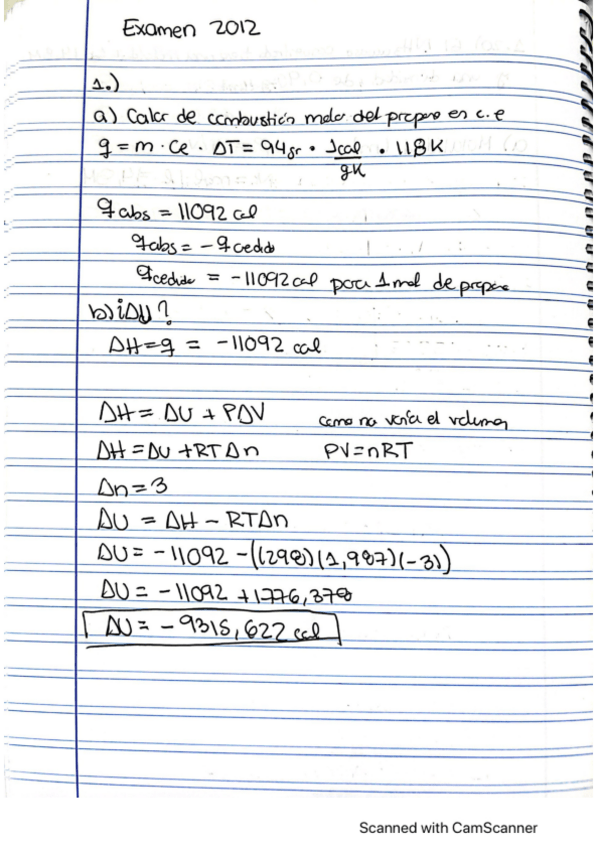 Examen 2012
1.)
a) Calor de combustión molar del propano en c.e
q = m · Ce · ΔT = 94gr · 1cal/gK · 118K
qabs = 11092 cal
qabs = - qcedido
qcedido = -11092 cal para 1 mol de propano
b) ¿ΔU?
ΔH = q = -11092 cal
ΔH = ΔU + PΔV como no varía el volumen
ΔH = ΔU + RTΔn PV = nRT
Δn = 3
ΔU = ΔH - RTΔn
ΔU = -11092 - ((298)(1,987)(-3))
ΔU = -11092 + 1776,378
ΔU = -9315,622 cal
Scanned with CamScanner